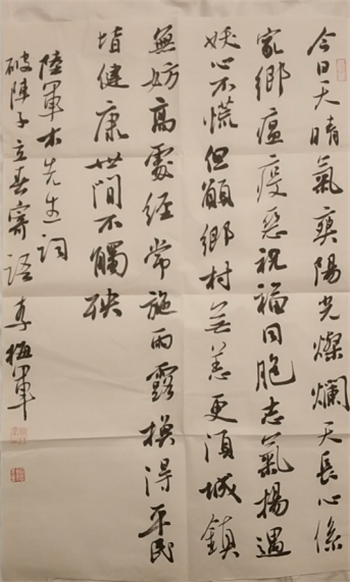 今日天晴氣爽陽光燦爛天長心係
家鄉瘟疫惡祝福同胞志氣揚遇
妖心不慌但願鄉村無恙更須城鎮
無妨高處經常施雨露換得平民
皆健康世間不觸殃
陸軍木先生詞
破陣子立春寄語 李極軍